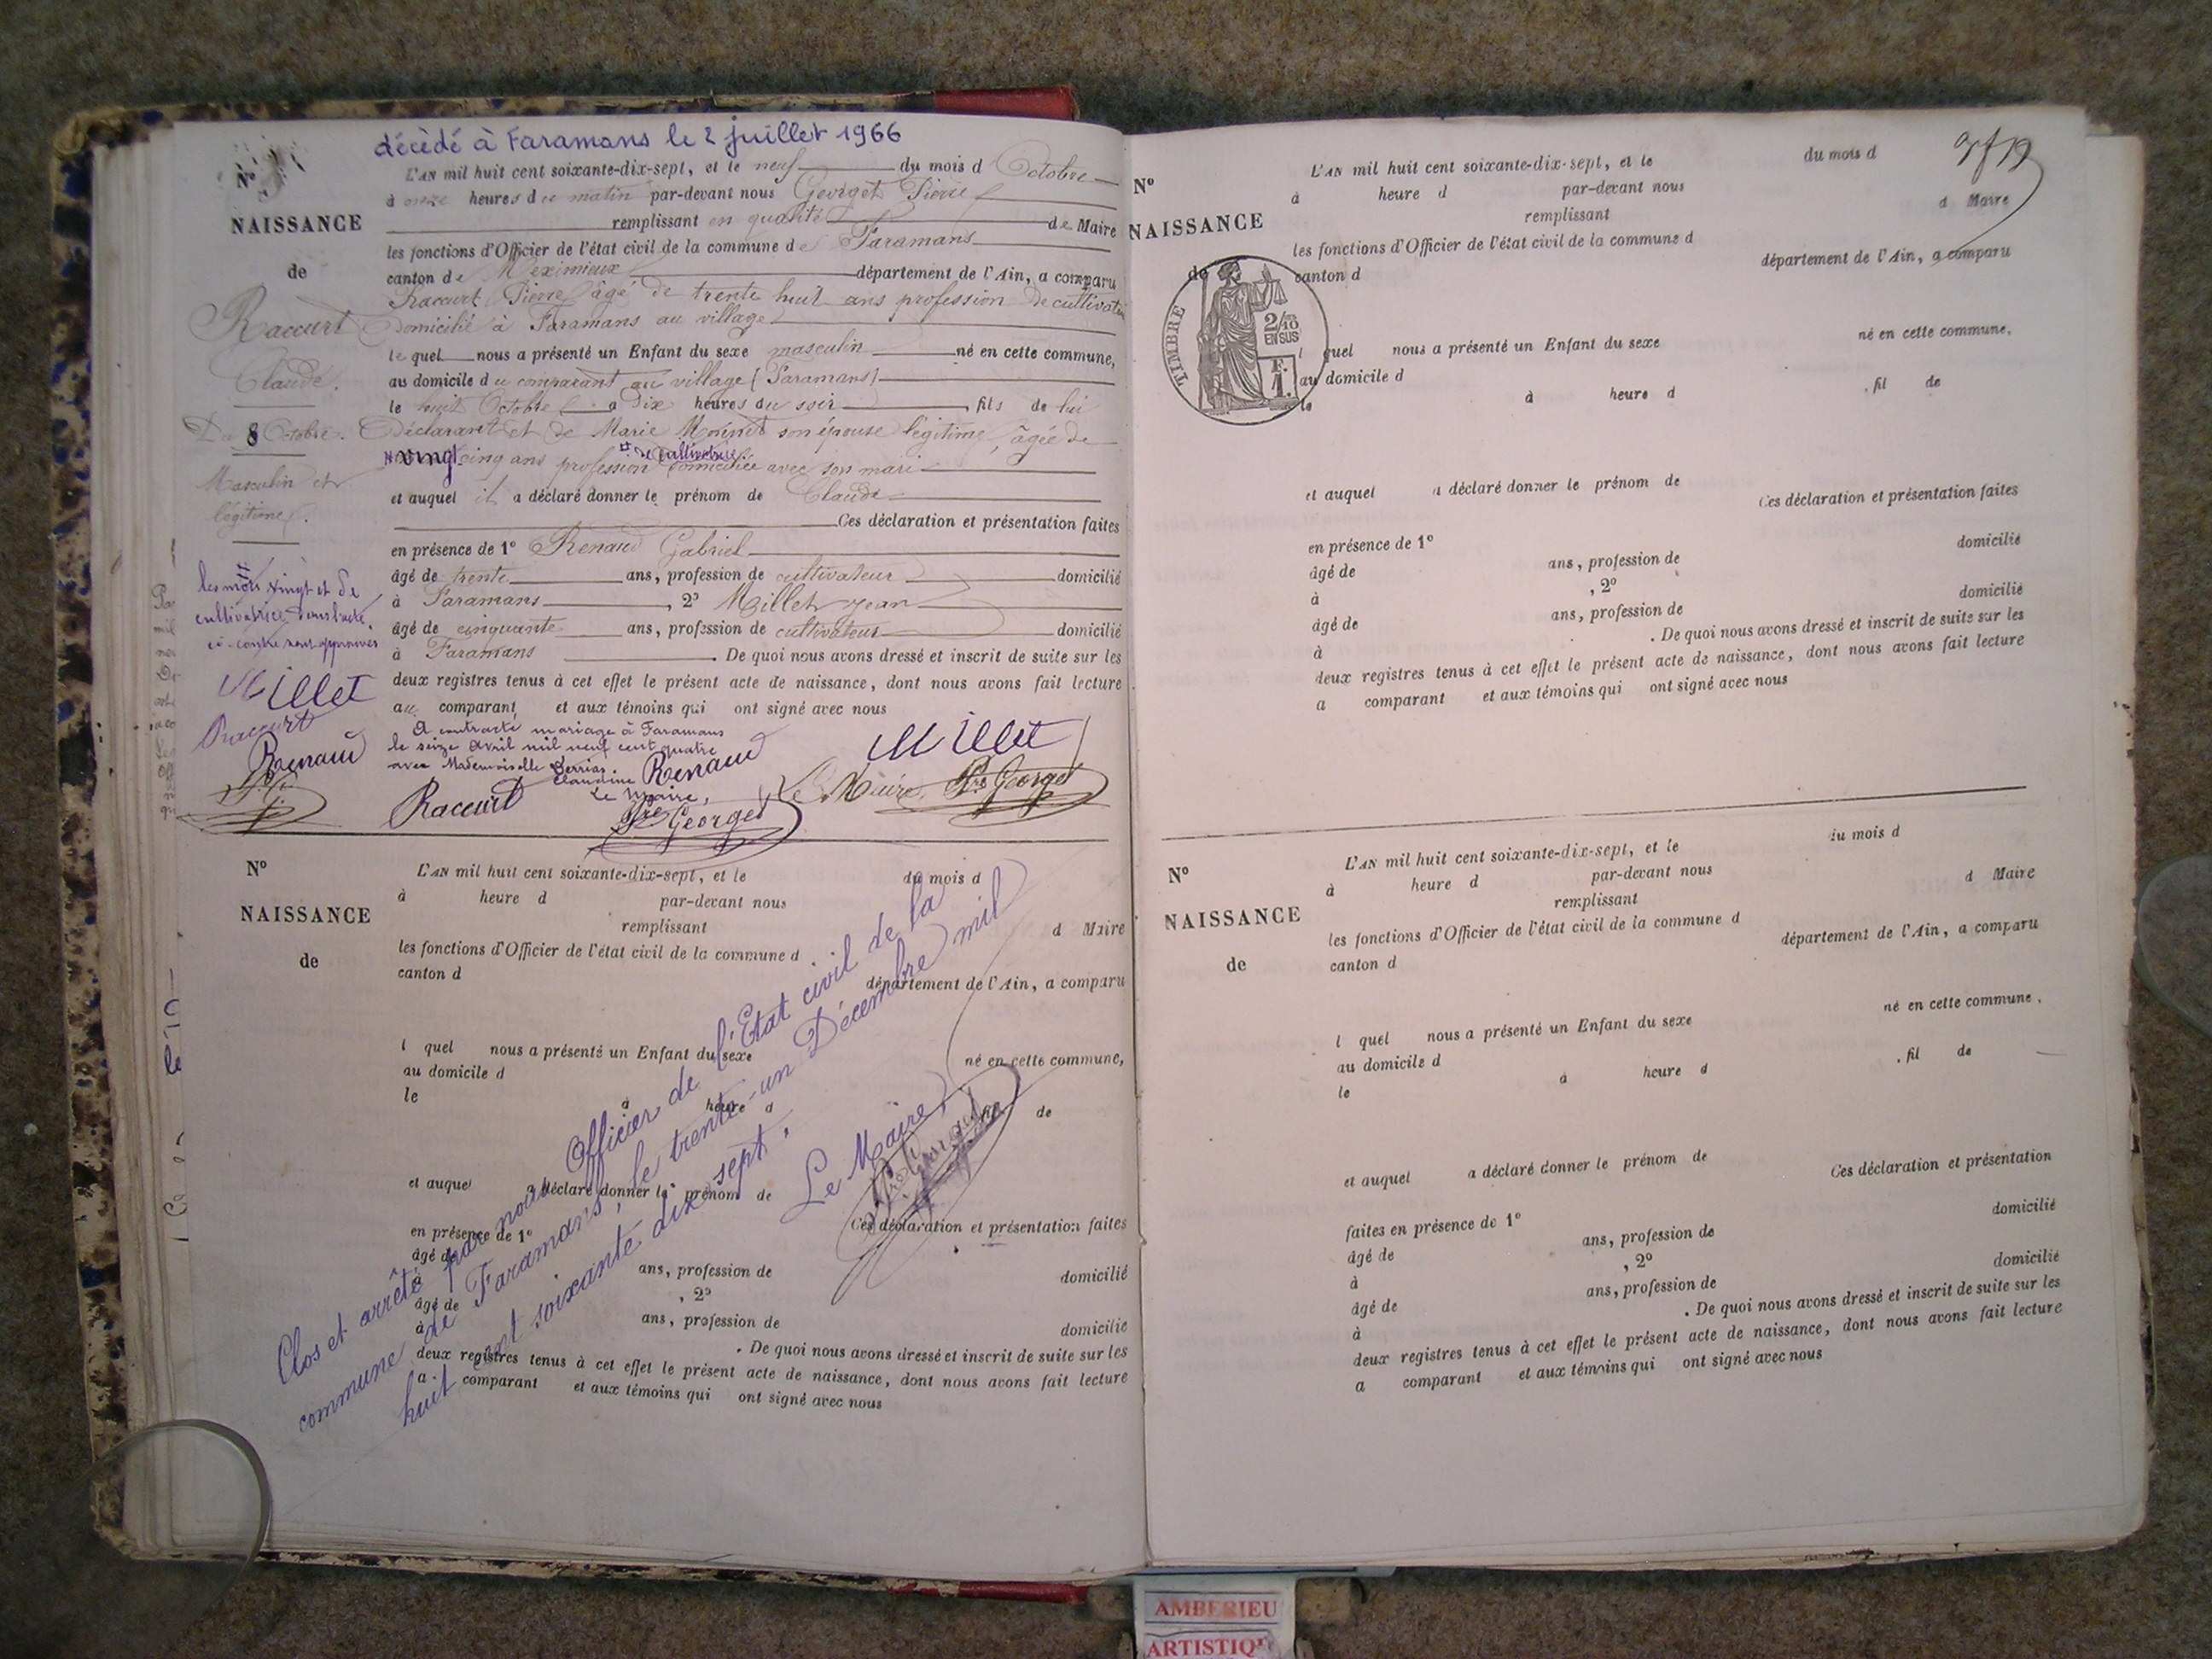 décédé à Faramans le 2 juillet 1966
L'AN mil huit cent soixante-dix-sept, et le neuf du mois d Octobre
Nº
à onze heures du matin par-devant nous Georget Pierre
NAISSANCE
remplissant en qualité de Maire
les fonctions d'Officier de l'état civil de la commune de Faramans
de
canton de Meximieux département de l'Ain, a comparu
Raccurt Pierre âgé de trente huit ans profession de cultivateur
Raccurt
domicilié à Faramans au village
lequel nous a présenté un Enfant du sexe masculin né en cette commune,
Claude.
au domicile du comparant au village (Faramans)
le huit Octobre à dix heures du soir, fils de lui
Du 8 Octobre.
Déclarant et de Marie son épouse légitime, âgée de
vingt cinq ans profession # de cultivatrice domiciliée avec son mari
Masculin et
légitime.
et auquel il a déclaré donner le prénom de Claude
Ces déclaration et présentation faites
en présence de 1º Renaud Gabriel
âgé de trente ans, profession de cultivateur domicilié
à Faramans, 2º Millet Jean
âgé de cinquante ans, profession de cultivateur domicilié
à Faramans. De quoi nous avons dressé et inscrit de suite sur les
deux registres tenus à cet effet le présent acte de naissance, dont nous avons fait lecture
au comparant et aux témoins qui ont signé avec nous
# les mots vingt et de
cultivatrice dans l'acte
ci-contre sont approuvés
Millet
Raccurt
Renaud
A contracté mariage à Faramans
le seize avril mil neuf cent quatre
avec Mademoiselle
Claudine
Le Maire,
Pre Georget
Raccurt
Renaud
Millet
Le Maire Pre Georget
Nº
L'AN mil huit cent soixante-dix-sept, et le du mois d
à heure d par-devant nous
NAISSANCE
remplissant d Maire
les fonctions d'Officier de l'état civil de la commune d
de
canton d département de l'Ain, a comparu
l quel nous a présenté un Enfant du sexe né en cette commune,
au domicile d
le à heure d fil de
et auquel a déclaré donner le prénom de
Ces déclaration et présentation faites
en présence de 1º
âgé de ans, profession de domicilié
à , 2º
âgé de ans, profession de domicilié
à . De quoi nous avons dressé et inscrit de suite sur les
deux registres tenus à cet effet le présent acte de naissance, dont nous avons fait lecture
a comparant et aux témoins qui ont signé avec nous
Clos et arrêté par nous Officier de l'Etat civil de la
commune de Faramans, le trente-un Décembre mil
huit cent soixante dix sept.
Le Maire,
Nº
L'AN mil huit cent soixante-dix-sept, et le du mois d
à heure d par-devant nous
NAISSANCE
remplissant d Maire
les fonctions d'Officier de l'état civil de la commune d
de
canton d département de l'Ain, a comparu
TIMBRE
2/10
EN SUS
F.
1.
l quel nous a présenté un Enfant du sexe né en cette commune,
au domicile d
le à heure d , fil de
et auquel a déclaré donner le prénom de
Ces déclaration et présentation faites
en présence de 1º domicilié
âgé de ans, profession de
à , 2º domicilié
âgé de ans, profession de
à . De quoi nous avons dressé et inscrit de suite sur les
deux registres tenus à cet effet le présent acte de naissance, dont nous avons fait lecture
a comparant et aux témoins qui ont signé avec nous
Nº
L'AN mil huit cent soixante-dix-sept, et le du mois d
à heure d par-devant nous
NAISSANCE
remplissant d Maire
les fonctions d'Officier de l'état civil de la commune d
de
canton d département de l'Ain, a comparu
l quel nous a présenté un Enfant du sexe né en cette commune,
au domicile d
le à heure d , fil de
et auquel a déclaré donner le prénom de
Ces déclaration et présentation
faites en présence de 1º domicilié
âgé de ans, profession de
à , 2º domicilié
âgé de ans, profession de
à . De quoi nous avons dressé et inscrit de suite sur les
deux registres tenus à cet effet le présent acte de naissance, dont nous avons fait lecture
a comparant et aux témoins qui ont signé avec nous
AMBERIEU
ARTISTIQ